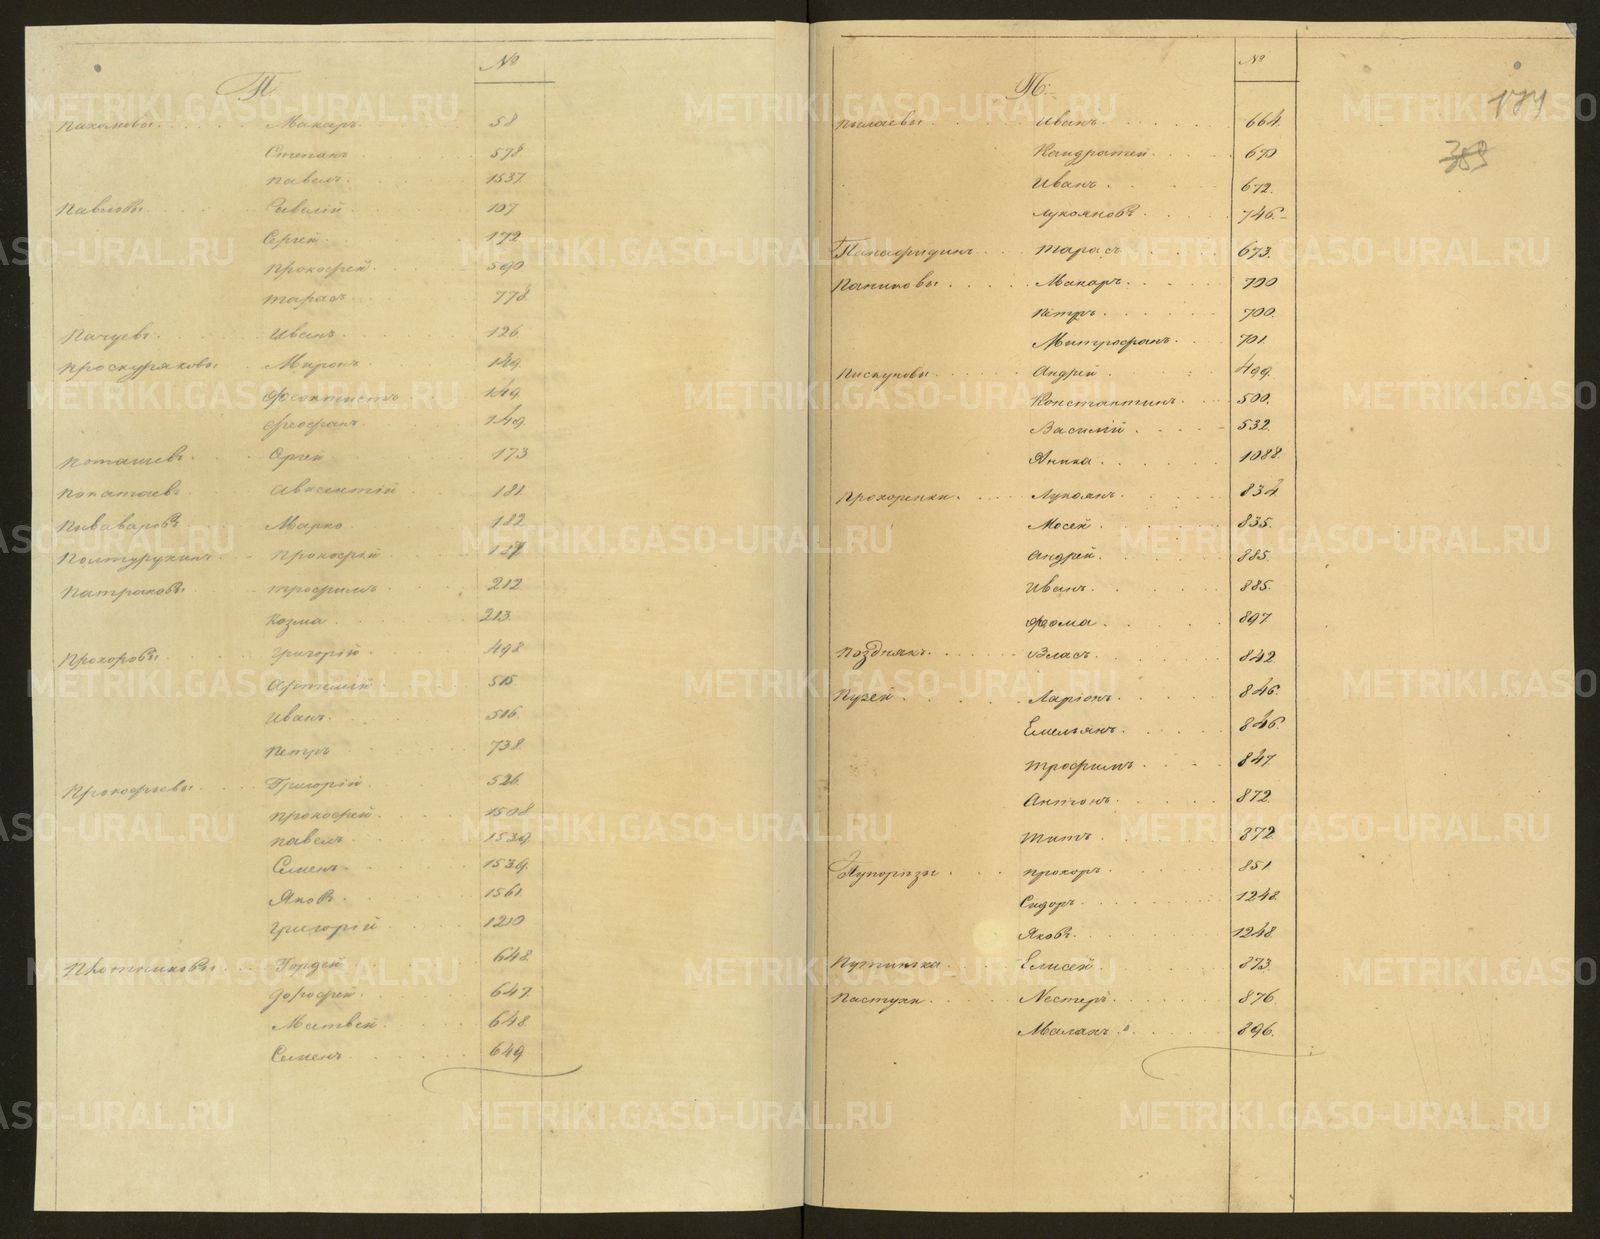 П. №
Пахомовы Макаръ. 58
Степанъ 578.
Павелъ. 1537.
Павловы Савелій 107
Сергей. 172.
Прокофей. 590.
Тарасъ. 778.
Пачуевъ Иванъ. 126.
Проскуряковы Миронъ. 149.
Феоктистъ. 149.
Феофанъ. 149.
Поташевъ. Сергей 173
Авксентій 181
Пивоваровъ Марко. 182
Полтурухинъ. Прокофей
Патраковы Трофимъ. 212
Козма 213.
Прохоровы Григорій. 498
Артемій 515.
Иванъ. 516.
Петръ 738.
Прокофьевы Григорій. 526.
Прокофей. 1508
Павелъ. 1539
Семенъ. 1539.
Яковъ. 1561
Григорій 1210
Плотниковы Гордей 648.
Дорофей. 647.
Матвей. 648
Семенъ. 649
П. №
174
353
Пылаевы. Иванъ. 664.
Кандратей. 670
Иванъ. 672.
Лукояновъ. 746.
Панафидинъ Тарасъ 673.
Паниковы. Макаръ. 700
Петръ. 700.
Митрофанъ. 701.
Пискуновы Андрей. 499.
Константинъ. 500.
Василій. 532.
Аника. 1088.
Прохоренки. Лукоянъ. 834.
Мосей. 835.
Андрей. 885.
Иванъ. 885.
Фома. 897
Позднякъ. Власъ. 842.
Пузей. Ларіонъ. 846.
Емельянъ. 846.
Трофимъ. 847.
Антонъ. 872.
Титъ. 872.
Пупорѣзы. Прохоръ. 851
Сидоръ. 1248.
Яковъ. 1248.
Путинька Елисей. 873.
Пастухи. Нестеръ. 876.
Маланъ. 896.
METRIKI.GASO-URAL.RU